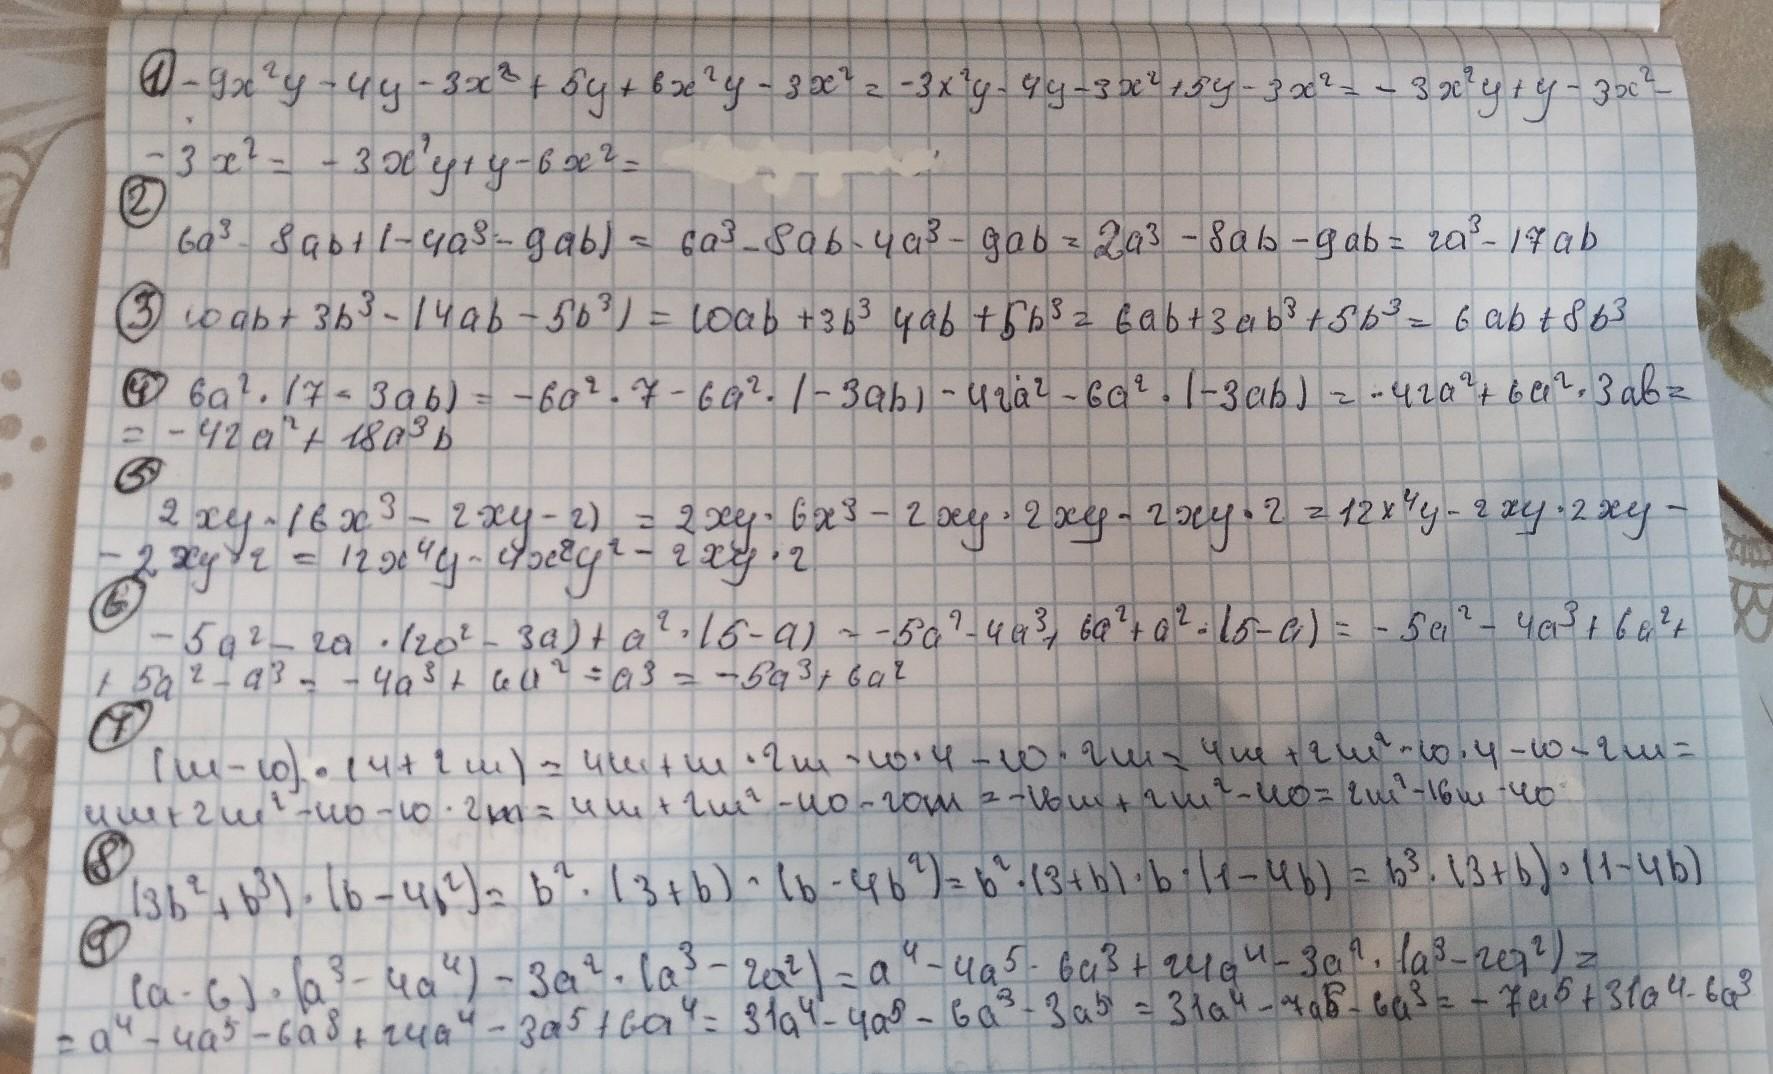 ① -9x²y-4y-3x²+5y+6x²y-3x²=-3x²y-4y-3x²+5y-3x²=-3x²y+y-3x²-
-3x²=-3x²y+y-6x²=
②
6a³-8ab+(-4a³-9ab)=6a³-8ab-4a³-9ab=2a³-8ab-9ab=2a³-17ab
③ 10ab+3b³-(4ab-5b³)=10ab+3b³ 4ab+5b³=6ab+3ab³+5b³=6ab+8b³
④ 6a²·(7-3ab)=-6a²·7-6a²·(-3ab)-42a²-6a²·(-3ab)=-42a²+6a²·3ab=
=-42a²+18a³b
⑤
2xy·(6x³-2xy-2)=2xy·6x³-2xy·2xy-2xy·2=12x⁴y-2xy·2xy-
-2xy·2=12x⁴y-4x²y²-2xy·2
⑥
-5a²-2a·(2a²-3a)+a²·(5-a)--5a²-4a³+6a²+a²·(5-a)=-5a²-4a³+6a²+
+5a²-a³=-4a³+6a²-a³=-5a³+6a²
⑦
(m-10)·(4+2m)=4m+m·2m-10·4-10·2m=4m+2m²-10·4-10-2m=
4m+2m²-40-10·2m=4m+2m²-40-20m=-16m+2m²-40=2m²-16m-40
⑧
(3b²+b³)·(b-4b²)=b²·(3+b)·(b-4b²)=b²·(3+b)·b·(1-4b)=b³·(3+b)·(1-4b)
⑨
(a-6)·(a³-4a⁴)-3a²·(a³-2a²)=a⁴-4a⁵-6a³+24a⁴-3a²·(a³-2a²)=
=a⁴-4a⁵-6a³+24a⁴-3a⁵+6a⁴=31a⁴-4a⁵-6a³-3a⁵=31a⁴-7a⁵-6a³=-7a⁵+31a⁴-6a³